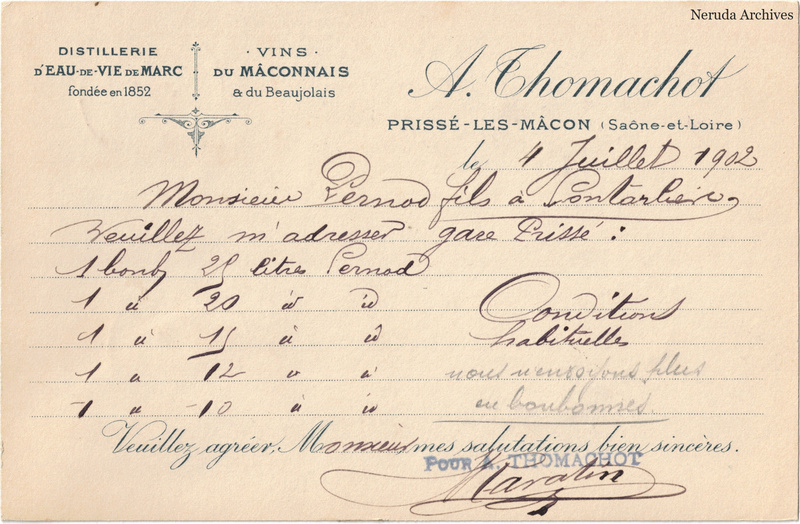 Neruda Archives
DISTILLERIE
D'EAU-DE-VIE DE MARC
fondée en 1852
· VINS ·
DU MÂCONNAIS
& du Beaujolais
A. Thomachot
PRISSÉ-LES-MÂCON (Saône-et-Loire)
le 4 Juillet 1902
Monsieur Pernod fils à Pontarlier,
Veuillez m'adresser gare Prissé :
1 bonb 25 litres Pernod
1 " 20 " "
1 " 15 " "
1 " 12 " "
1 " 10 " "
Conditions
habituelles
nous n'envoyons plus
en bonbonnes.
Veuillez agréer, Monsieur mes salutations bien sincères.
POUR A. THOMACHOT